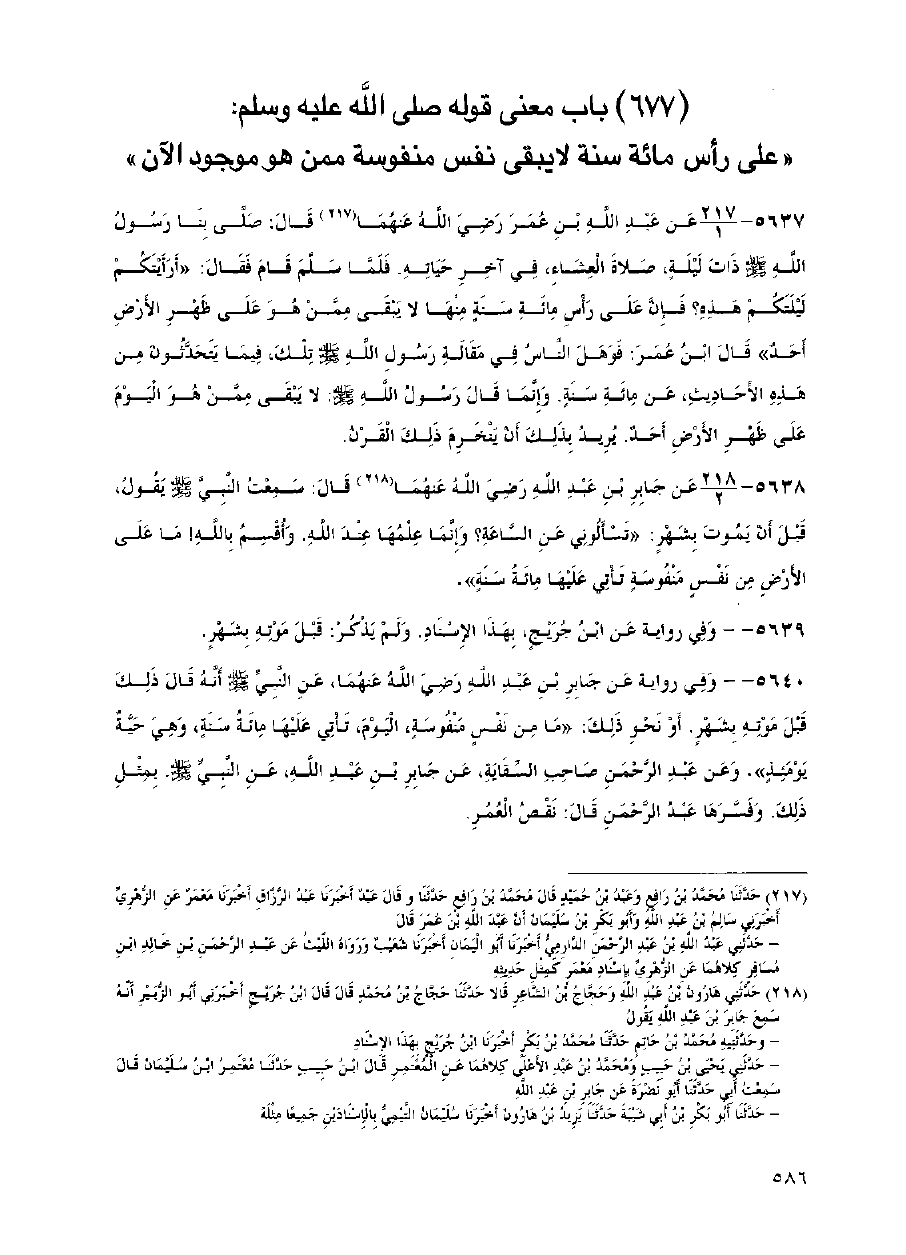 (٦٧٧) باب معنى قوله صلى الله عليه وسلم:
«على رأس مائة سنة لايبقى نفس منفوسة ممن هو موجود الآن»
٥٦٣٧- ٢١٧/١ عَن عَبْدِ اللَّهِ بْنِ عُمَرَ رَضِيَ اللَّهُ عَنْهُمَا(٢١٧) قَالَ: صَلَّى بِنَا رَسُولُ
اللَّهِ ﷺ ذَاتَ لَيْلَةٍ، صَلاةَ الْعِشَاءِ، فِي آخِرِ حَيَاتِهِ. فَلَمَّا سَلَّمَ قَامَ فَقَالَ: «أَرَأَيْتَكُمْ
لَيْلَتَكُمْ هَذِهِ؟ فَإِنَّ عَلَى رَأْسِ مِائَةِ سَنَةٍ مِنْهَا لا يَبْقَى مِمَّنْ هُوَ عَلَى ظَهْرِ الأَرْضِ
أَحَدٌ» قَالَ ابْنُ عُمَرَ: فَوَهَلَ النَّاسُ فِي مَقَالَةِ رَسُولِ اللَّهِ ﷺ تِلْكَ، فِيمَا يَتَحَدَّثُونَ مِن
هَذِهِ الأَحَادِيثِ، عَن مِائَةِ سَنَةٍ. وَإِنَّمَا قَالَ رَسُولُ اللَّهِ ﷺ: لا يَبْقَى مِمَّنْ هُوَ الْيَوْمَ
عَلَى ظَهْرِ الأَرْضِ أَحَدٌ. يُرِيدُ بِذَلِكَ أَنْ يَنْخَرِمَ ذَلِكَ الْقَرْنُ.
٥٦٣٨- ٢١٨/٢ عَن جَابِرِ بْنِ عَبْدِ اللَّهِ رَضِيَ اللَّهُ عَنْهُمَا(٢١٨) قَالَ: سَمِعْتُ النَّبِيَّ ﷺ يَقُولُ،
قَبْلَ أَنْ يَمُوتَ بِشَهْرٍ: «تَسْأَلُونِي عَنِ السَّاعَةِ؟ وَإِنَّمَا عِلْمُهَا عِنْدَ اللَّهِ. وَأُقْسِمُ بِاللَّهِ! مَا عَلَى
الأَرْضِ مِن نَفْسٍ مَنْفُوسَةٍ تَأْتِي عَلَيْهَا مِائَةُ سَنَةٍ».
٥٦٣٩- - وَفِي رواية عَن ابْنُ جُرَيْجٍ، بِهَذَا الإِسْنَادِ. وَلَمْ يَذْكُرْ: قَبْلَ مَوْتِهِ بِشَهْرٍ.
٥٦٤٠- - وَفِي رواية عَن جَابِرِ بْنِ عَبْدِ اللَّهِ رَضِيَ اللَّهُ عَنْهُمَا، عَنِ النَّبِيِّ ﷺ أَنَّهُ قَالَ ذَلِكَ
قَبْلَ مَوْتِهِ بِشَهْرٍ. أَوْ نَحْوِ ذَلِكَ: «مَا مِن نَفْسٍ مَنْفُوسَةٍ، الْيَوْمَ، تَأْتِي عَلَيْهَا مِائَةُ سَنَةٍ، وَهِيَ حَيَّةٌ
يَوْمَئِذٍ». وَعَن عَبْدِ الرَّحْمَنِ صَاحِبِ السِّقَايَةِ، عَن جَابِرِ بْنِ عَبْدِ اللَّهِ، عَنِ النَّبِيِّ ﷺ. بِمِثْلِ
ذَلِكَ. وَفَسَّرَهَا عَبْدُ الرَّحْمَنِ قَالَ: نَقْصُ الْعُمُرِ.
(٢١٧) حَدَّثَنَا مُحَمَّدُ بْنُ رَافِعٍ وَعَبْدُ بْنُ حُمَيْدٍ قَالَ مُحَمَّدُ بْنُ رَافِعٍ حَدَّثَنَا و قَالَ عَبْدٌ أَخْبَرَنَا عَبْدُ الرَّزَّاقِ أَخْبَرَنَا مَعْمَرٌ عَنِ الزُّهْرِيِّ
أَخْبَرَنِي سَالِمُ بْنُ عَبْدِ اللَّهِ وَأَبُو بَكْرِ بْنُ سُلَيْمَانَ أَنَّ عَبْدَ اللَّهِ بْنَ عُمَرَ قَالَ
- حَدَّثَنِي عَبْدُ اللَّهِ بْنُ عَبْدِ الرَّحْمَنِ الدَّارِمِيُّ أَخْبَرَنَا أَبُو الْيَمَانِ أَخْبَرَنَا شُعَيْبٌ وَرَوَاهُ اللَّيْثُ عَن عَبْدِ الرَّحْمَنِ بْنِ خَالِدِ ابْنِ
مُسَافِرٍ كِلاهُمَا عَنِ الزُّهْرِيِّ بِإِسْنَادِ مَعْمَرٍ كَمِثْلِ حَدِيثِهِ
(٢١٨) حَدَّثَنِي هَارُونُ بْنُ عَبْدِ اللَّهِ وَحَجَّاجُ بْنُ الشَّاعِرِ قَالا حَدَّثَنَا حَجَّاجُ بْنُ مُحَمَّدٍ قَالَ قَالَ ابْنُ جُرَيْجٍ أَخْبَرَنِي أَبُو الزُّبَيْرِ أَنَّهُ
سَمِعَ جَابِرَ بْنَ عَبْدِ اللَّهِ يَقُولُ
- وحَدَّثَنِيهِ مُحَمَّدُ بْنُ حَاتِمٍ حَدَّثَنَا مُحَمَّدُ بْنُ بَكْرٍ أَخْبَرَنَا ابْنُ جُرَيْجٍ بِهَذَا الإِسْنَادِ
- حَدَّثَنِي يَحْيَى بْنُ حَبِيبٍ وَمُحَمَّدُ بْنُ عَبْدِ الأَعْلَى كِلاهُمَا عَنِ الْمُعْتَمِرِ قَالَ ابْنُ حَبِيبٍ حَدَّثَنَا مُعْتَمِرُ ابْنُ سُلَيْمَانَ قَالَ
سَمِعْتُ أَبِي حَدَّثَنَا أَبُو نَضْرَةَ عَن جَابِرِ بْنِ عَبْدِ اللَّهِ
- حَدَّثَنَا أَبُو بَكْرِ بْنُ أَبِي شَيْبَةَ حَدَّثَنَا يَزِيدُ بْنُ هَارُونَ أَخْبَرَنَا سُلَيْمَانُ التَّيْمِيُّ بِالإِسْنَادَيْنِ جَمِيعًا مِثْلَهُ
٥٨٦